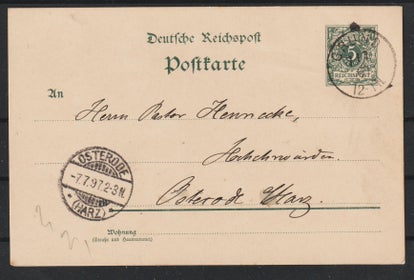 Deutsche Reichspost
Postkarte
5
REICHSPOST
12-1N
An
Herrn Pastor Hennecke,
Hochwürden.
Osterode Harz.
OSTERODE
-7.7.97.2-3N.
(HARZ)
Wohnung
(Straße und Hausnummer)